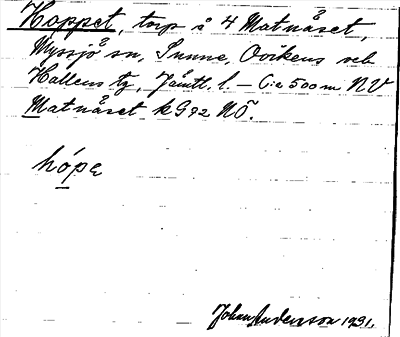 Hoppet, torp å 4 Matnåset,
Myssjö sn, Sunne, Ovikens och
Hallens tg, Jämtl. l. – C:a 500 m NV
Matnåset kG92 NÖ.
hópe
Johan Anderson 1931.